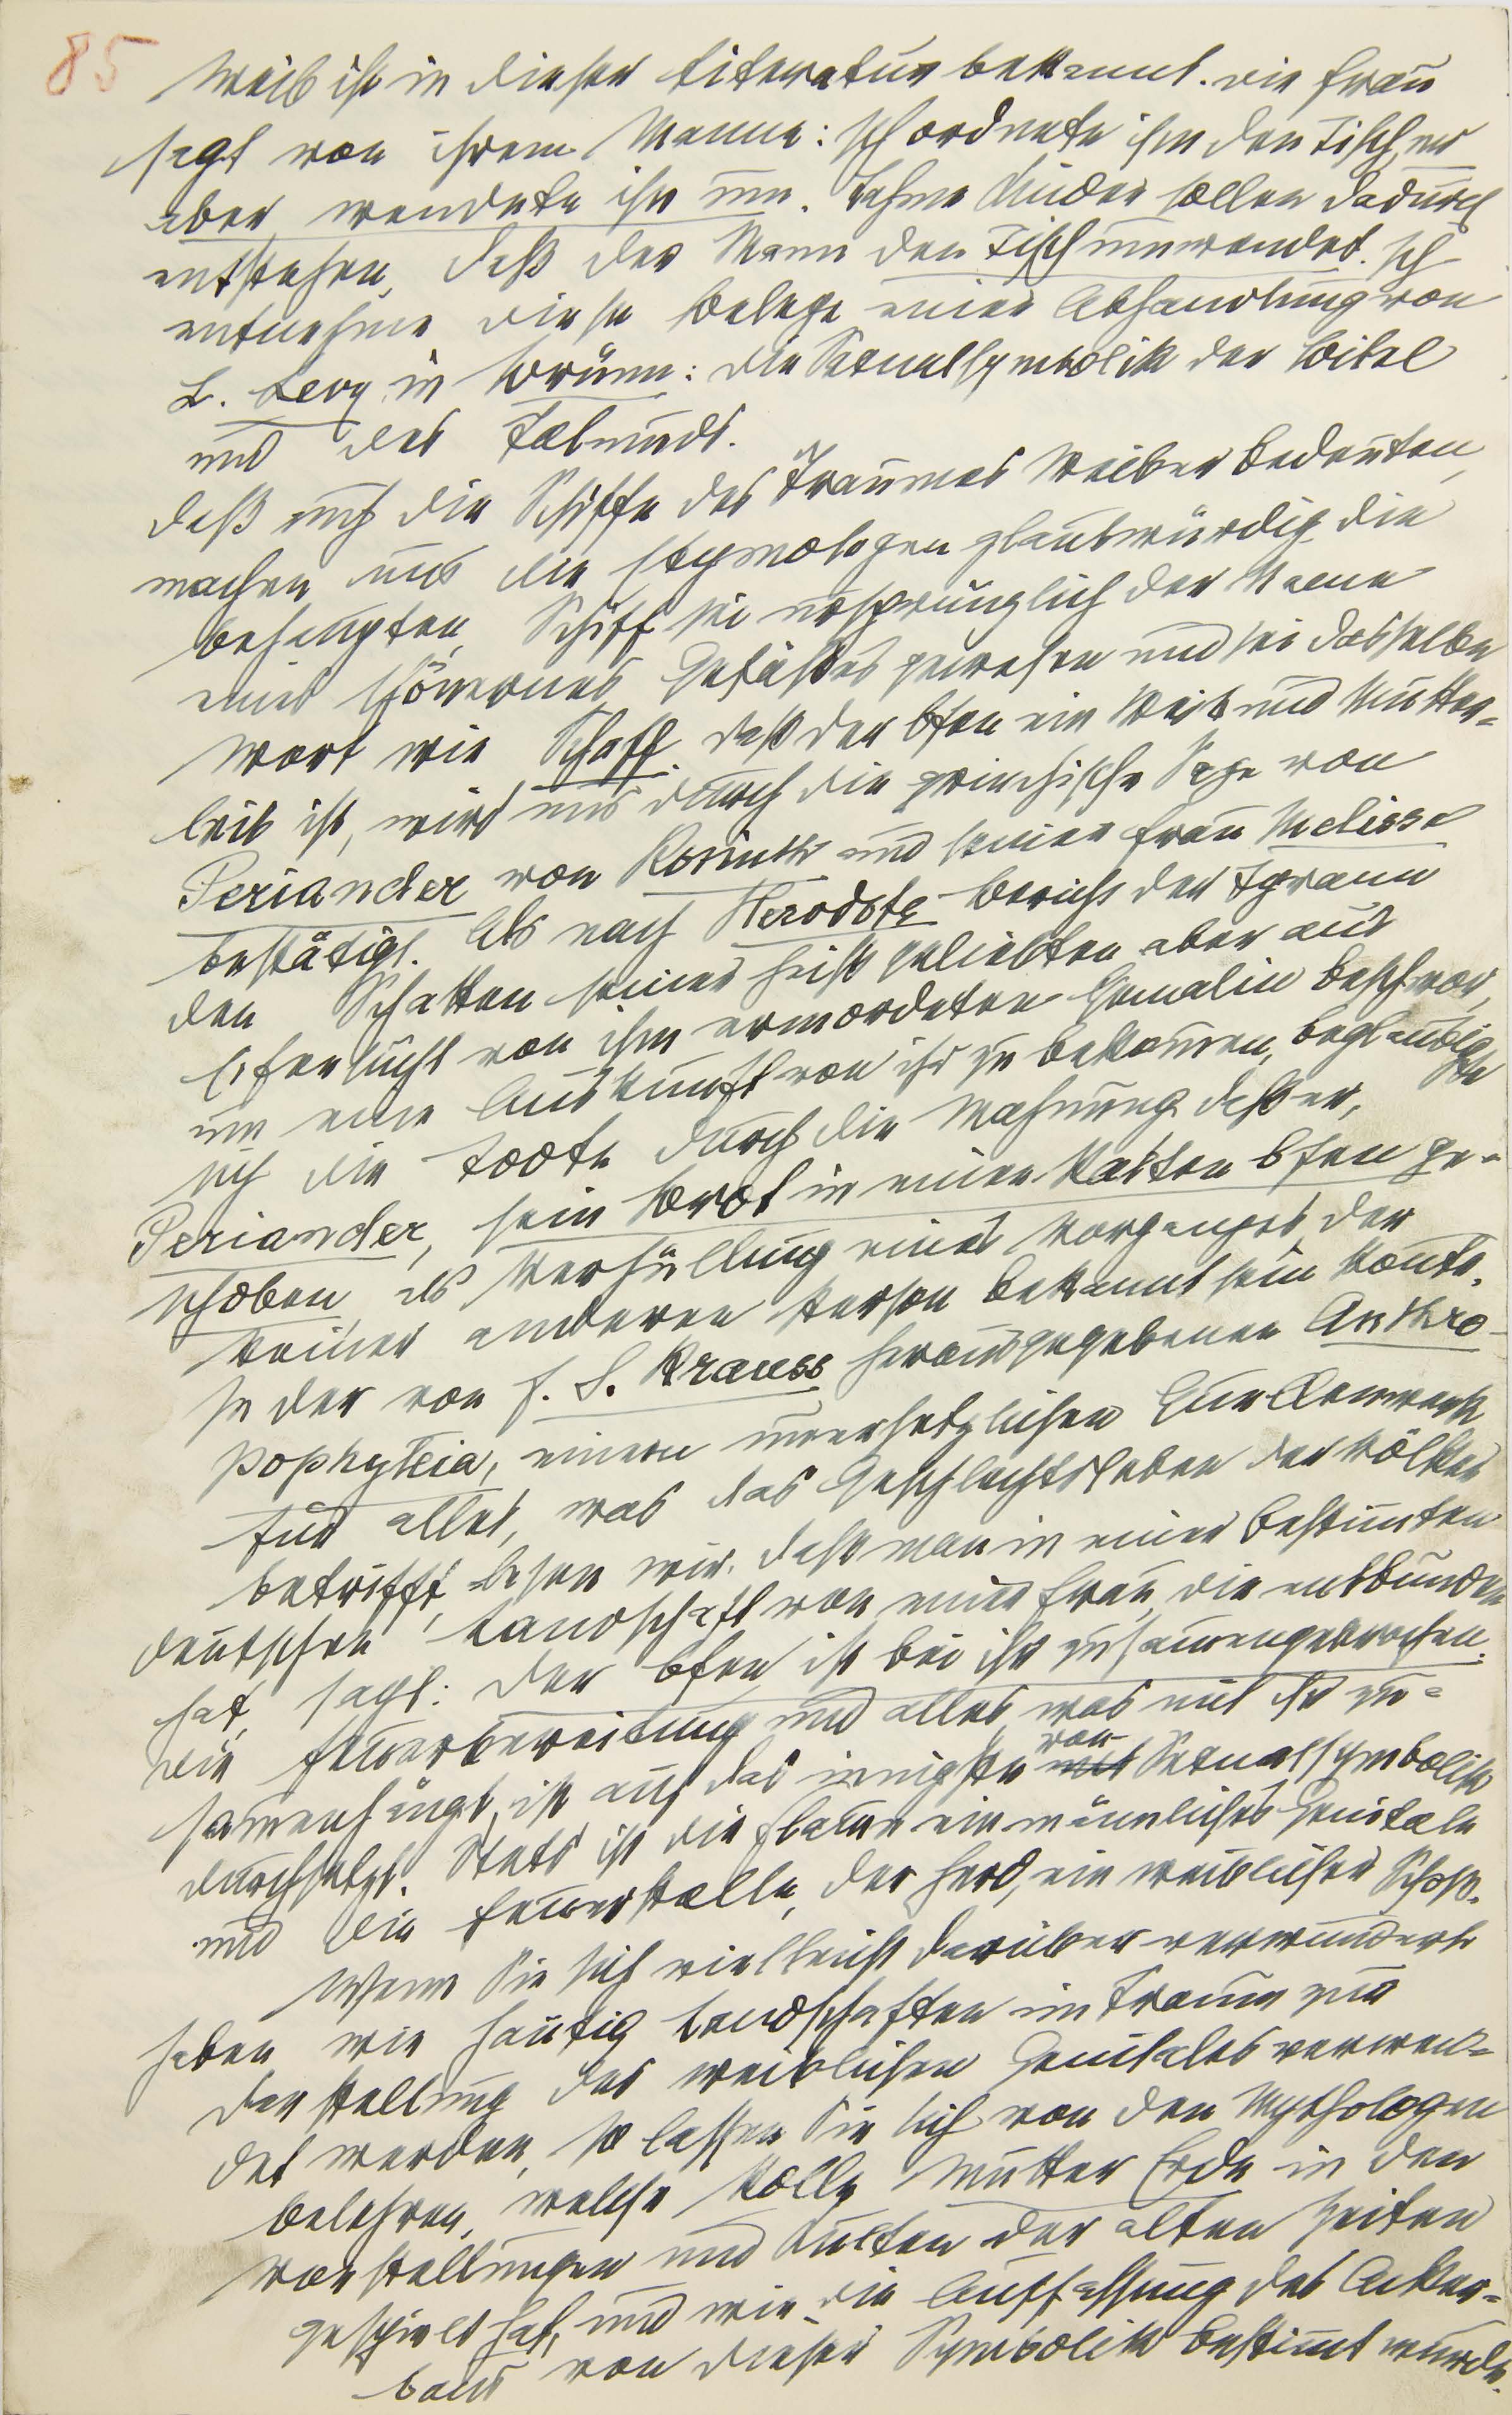 85
Weib ist in dieser Literatur bekannt. Die Frau
sagt von ihrem Manne: Ich ordnete ihm den Tisch, er
aber wendete ihn um. Lahme Kinder sollen dadurch
entstehen, daß der Mann den Tisch umwendet. Ich
entnehme diese Belege einer Abhandlung von
L. Levy in Brünn: Die Sexualsymbolik der Bibel
und des Talmuds.
Daß auch die Schiffe des Traumes Weiber bedeuten,
machen uns die Etymologen glaubwürdig, die
behaupten, Schiff sei ursprünglich der Name
eines thönernes Gefäßes gewesen und sei dasselbe
Wort wie Schaff. Daß der Ofen ein Weib und Mutter-
leib ist, wird uns durch die griechische Sage von
Periander von Korinth und seiner Frau Melissa
bestätigt. Als nach Herodots Bericht der Tyrann
den Schatten seiner heiß geliebten, aber aus
Eifersucht von ihm ermordeten Gemalin beschwor,
um eine Auskunft von ihr zu bekomen, beglaubigte
sich die Todte durch die Mahnung, daß er,
Periander, sein Brot in einen kalten Ofen ge-
schoben, als Verhüllung eines Vorganges, der
keiner anderen Person bekannt sein konnte.
In der von F. S. Krauss herausgegebenen Anthro-
pophyteia, einem unersetzlichen Quellenwerk
für alles, was das Geschlechtsleben der Völker
betrifft, lesen wir, daß man in einer bestimten
deutschen Landschaft von einer Frau, die entbunden
hat, sagt: Der Ofen ist bei ihr zusamengebrochen.
Die Feuerbereitung und alles, was mit ihr zu-
samenhängt, ist auf das innigste mit von Sexualsymbolik
durchsetzt. Stets ist die Flame ein männliches Genitale
und die Feuerstelle, der Herd, ein weiblicher Schoß.
Wenn Sie sich vielleicht darüber verwundert
haben, wie häufig Landschaften im Traum zur
Darstellung des weiblichen Genitales verwen-
det werden, so lassen Sie sich von den Mythologen
belehren, welche Rolle Mutter Erde in den
Vorstellungen und Kulten der alten Zeiten
gespielt hat, und wie die Auffassung des Acker-
baus von dieser Symbolik bestimt wurde.